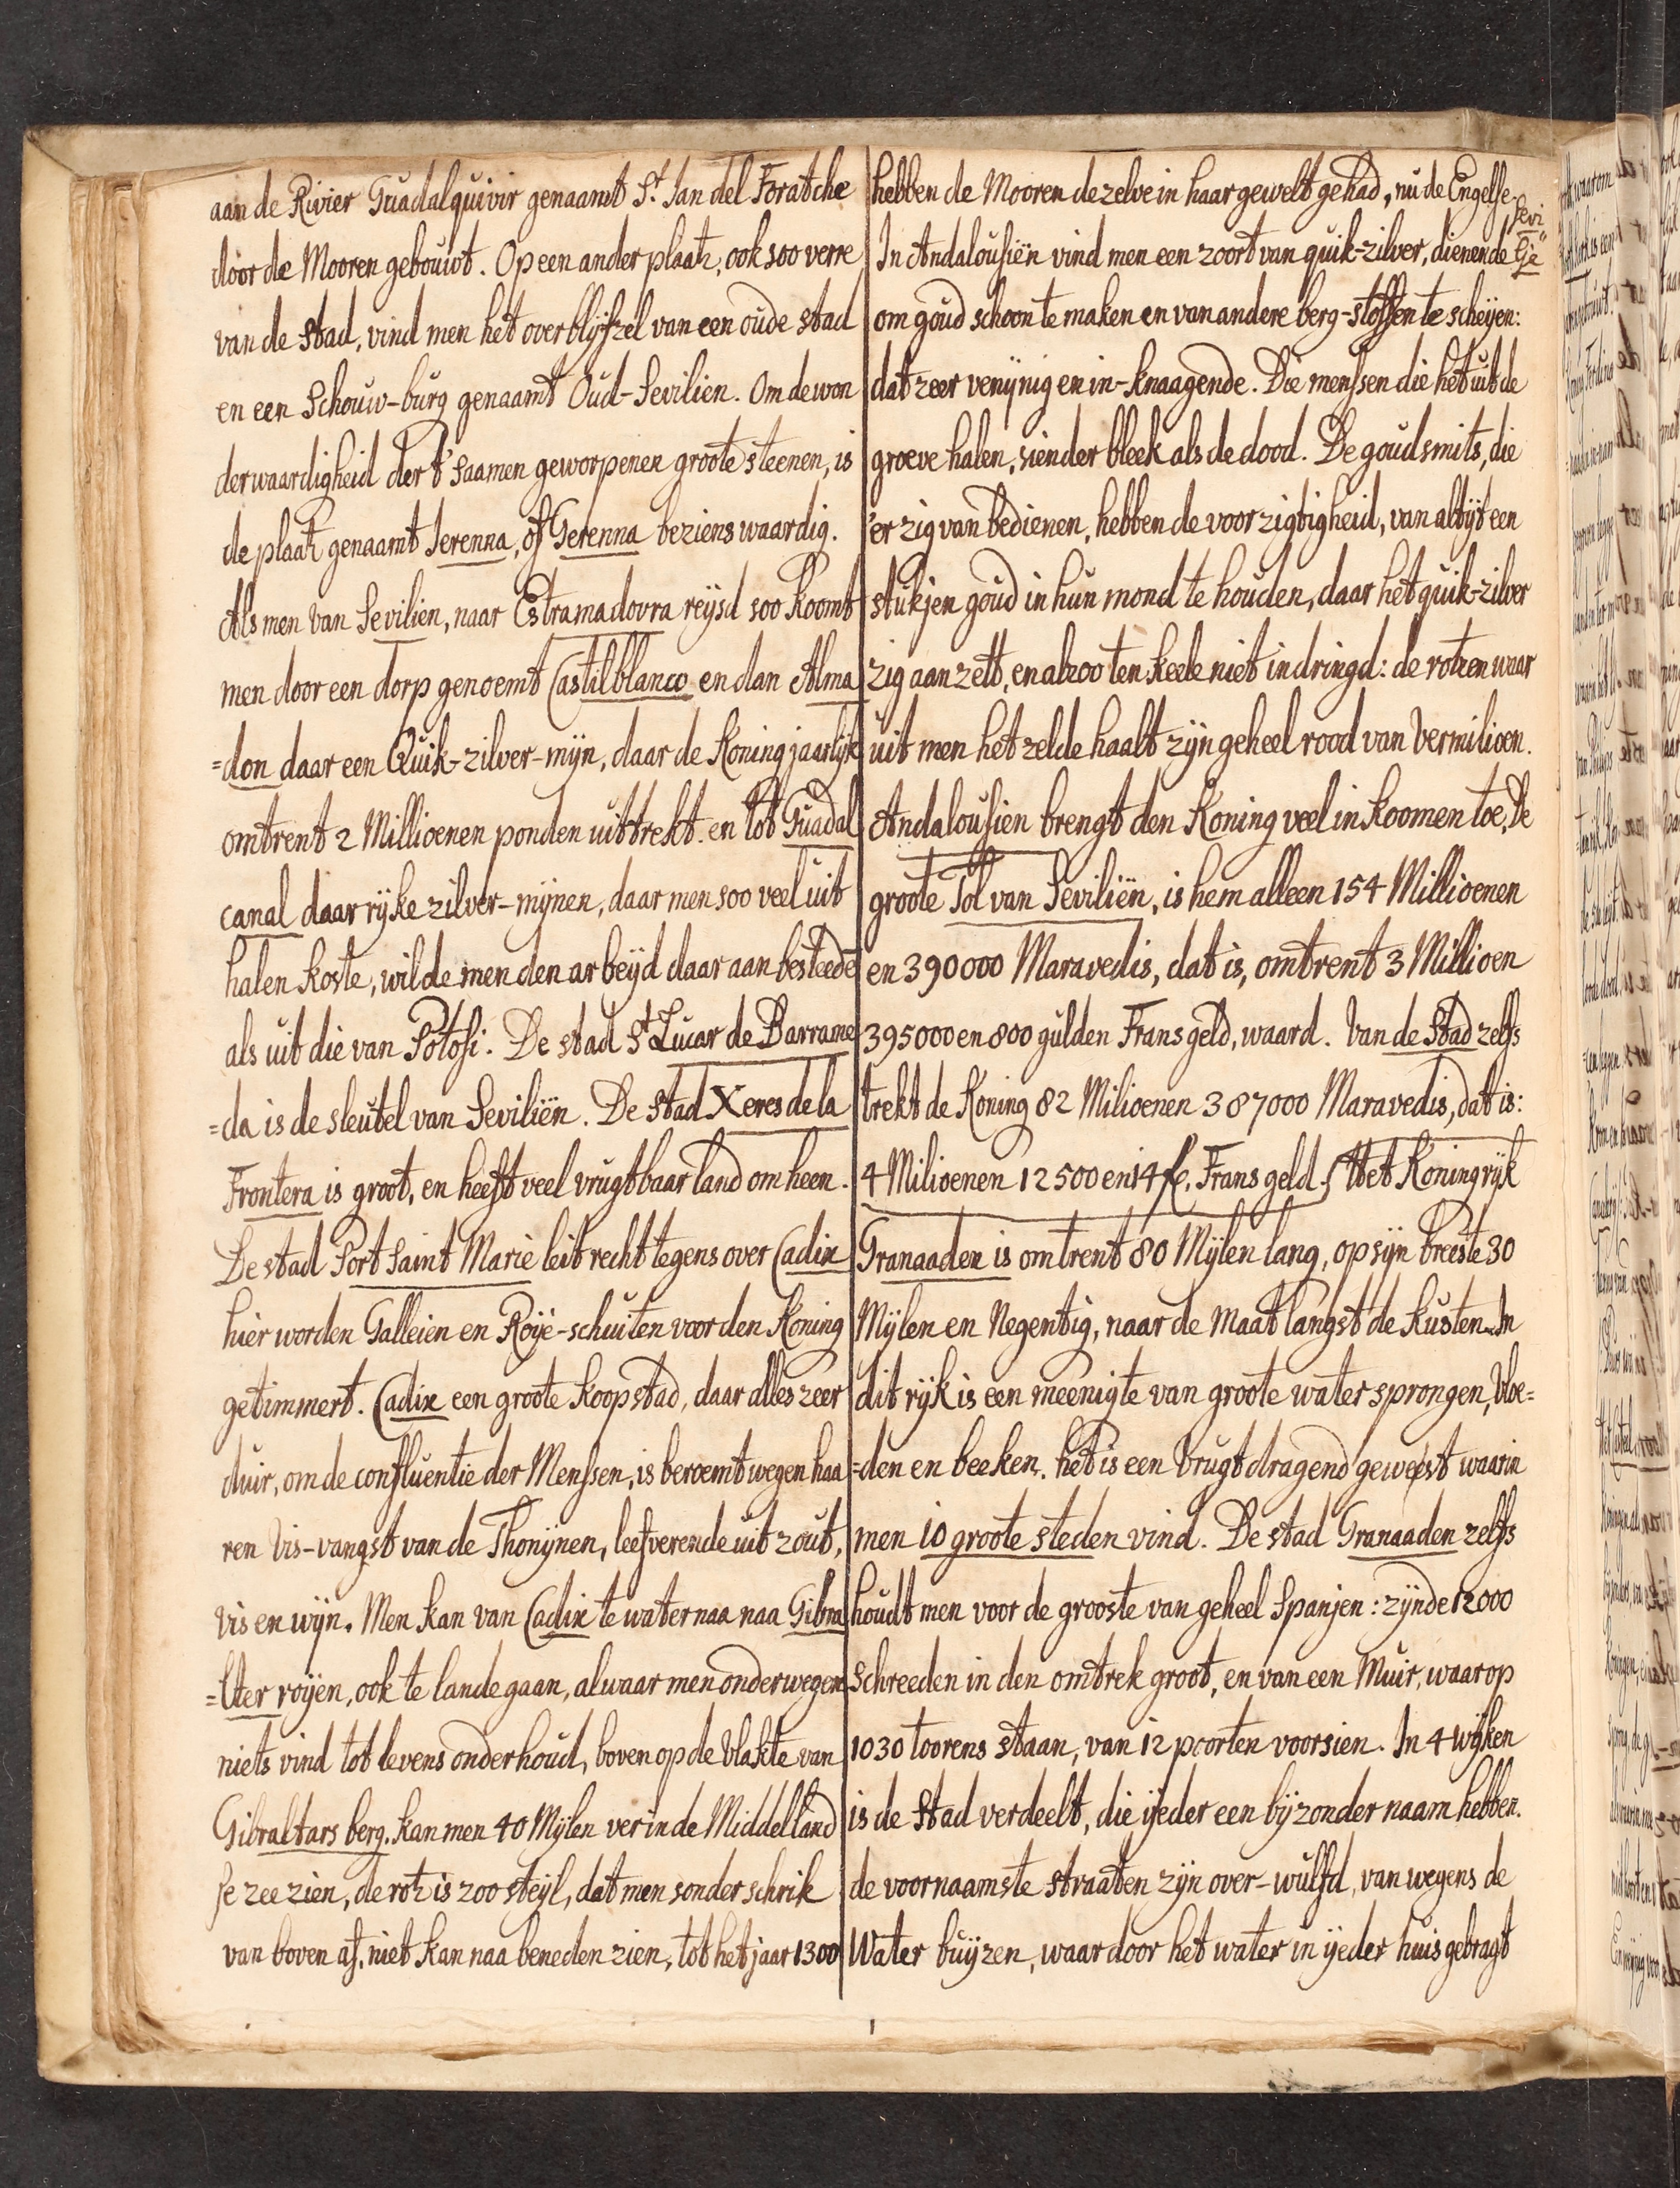 aan de Rivier Guadalquivir genaamt St. Jan del Foratche
door de Mooren gebouwt. Op een ander plaatz, ook soo verre
van de stad, vind men het overblijfzel van een oude stad
en een Schouw-burg genaamt Oud-Sevilien. Om de won
derwaardigheid der t'saamen geworpenen groote steenen, is
de plaatz genaamt Serenna, of Gerenna beziens waardig.
Als men van Sevilien, naar Estramadovra reijsd soo koomt
men door een dorp genoemt Castilblanco en dan Alma
=don daar een Quik-zilver-mijn, daar de Koning jaarlijk
omtrent 2 Millioenen ponden uittrekt. en tot Guadal
canal daar rijke zilver-mijnen, daar men soo veel uit
halen koste, wilde men den arbeijd daar aan besteede
als uit die van Potosi. De stad St. Lucar de Barrame
=da is de sleutel van Seviliën. De stad Xeres de la
Frontera is groot, en heeft veel vrugtbaar land om heen.
De stad Port Saint Marie leit recht tegens over Cadix
hier worden Galleien en Roije-schuiten voor den Koning
getimmert. Cadix een groote koopstad, daar alles zeer
duir, om de confluentie der Menssen, is beroemt wegen haa
ren Vis-vangst van de Thonijnen, leefverende uit zout,
vis en wijn. Men kan van Cadix te water naa naa Gibra
=lter roijen, ook te lande gaan, alwaar men onderwegen
niets vind tot levens onderhoud, boven op de vlakte van
Gibraltars berg. kan men 40 Mijlen ver in de Middelland
se zee zien, de rotz is zoo steijl, dat men sonder schrik
van boven af, niet kan naa beneden zien, tot het jaar 1300
hebben de Mooren dezelve in haar gewelt gehad, nu de Engelse.
In Andalousiën vind men een zoort van quik-zilver, dienende
om goud schoon te maken en van andere berg-stoffen te scheijen:
dat zeer venijnig en in-knaagende. Die menssen die het uit de
groeve halen, sien der bleek als de dood. De goudsmits, die
'er zig van bedienen, hebben de voorzigtigheid, van altijt een
stukjen goud in hun mond te houden, daar het quik-zilver
zig aan zett, en alzoo ten keele niet indringd: de rotzen waar
uit men het zelde haalt zijn geheel rood van Vermilioen.
Andalousien brengt den Koning veel inkoomen toe, De
groote Tol van Seviliën, is hem alleen 154 Millioenen
en 390000 Maravedis, dat is, omtrent 3 Millioen
395000 en 800 gulden Frans geld, waard. Van de Stad zelfs
trekt de Koning 82 Milioenen 387000 Maravedis, dat is:
4 Milioenen 12500 en 14 Frans geld. Het Koningrijk
Granaaden is omtrent 80 Mijlen lang, op sijn breeste 30
Mijlen en Negentig, naar de Maat langst de kusten. In
dit rijk is een meenigte van groote water sprongen, Vloe=
=den en beeken. het is een Vrugtdragend gewest waarin
men 10 groote steden vind. De stad Granaaden zelfs
houdt men voor de grooste van geheel Spanjen: zijnde 12000
Schreeden in den omtrek groot, en van een Muir, waarop
1030 toorens staan, van 12 poorten voorsien. In 4 wijken
is de Stad verdeelt, die ijeder een bijzonder naam hebben.
de voornaamste straaten zijn over-wulfd, van wegens de
Water buijzen, waar door het water in ijeder huis gebragt